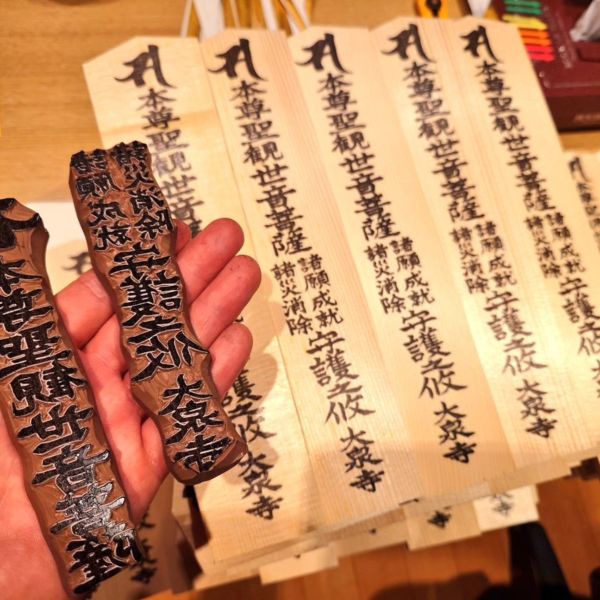 本尊聖観世音菩薩
諸願成就
諸災消除
守護之攸 大泉寺
本尊聖観世音菩薩
諸願成就
諸災消除
守護之攸 大泉寺
本尊聖観世音菩薩
諸願成就
諸災消除
守護之攸 大泉寺
本尊聖観世音菩薩
諸願成就
諸災消除
守護之攸 大泉寺
本尊聖観世音
之攸 大泉寺
諸願成就
諸災消除
守護之攸 大泉寺
本尊聖観世音菩薩